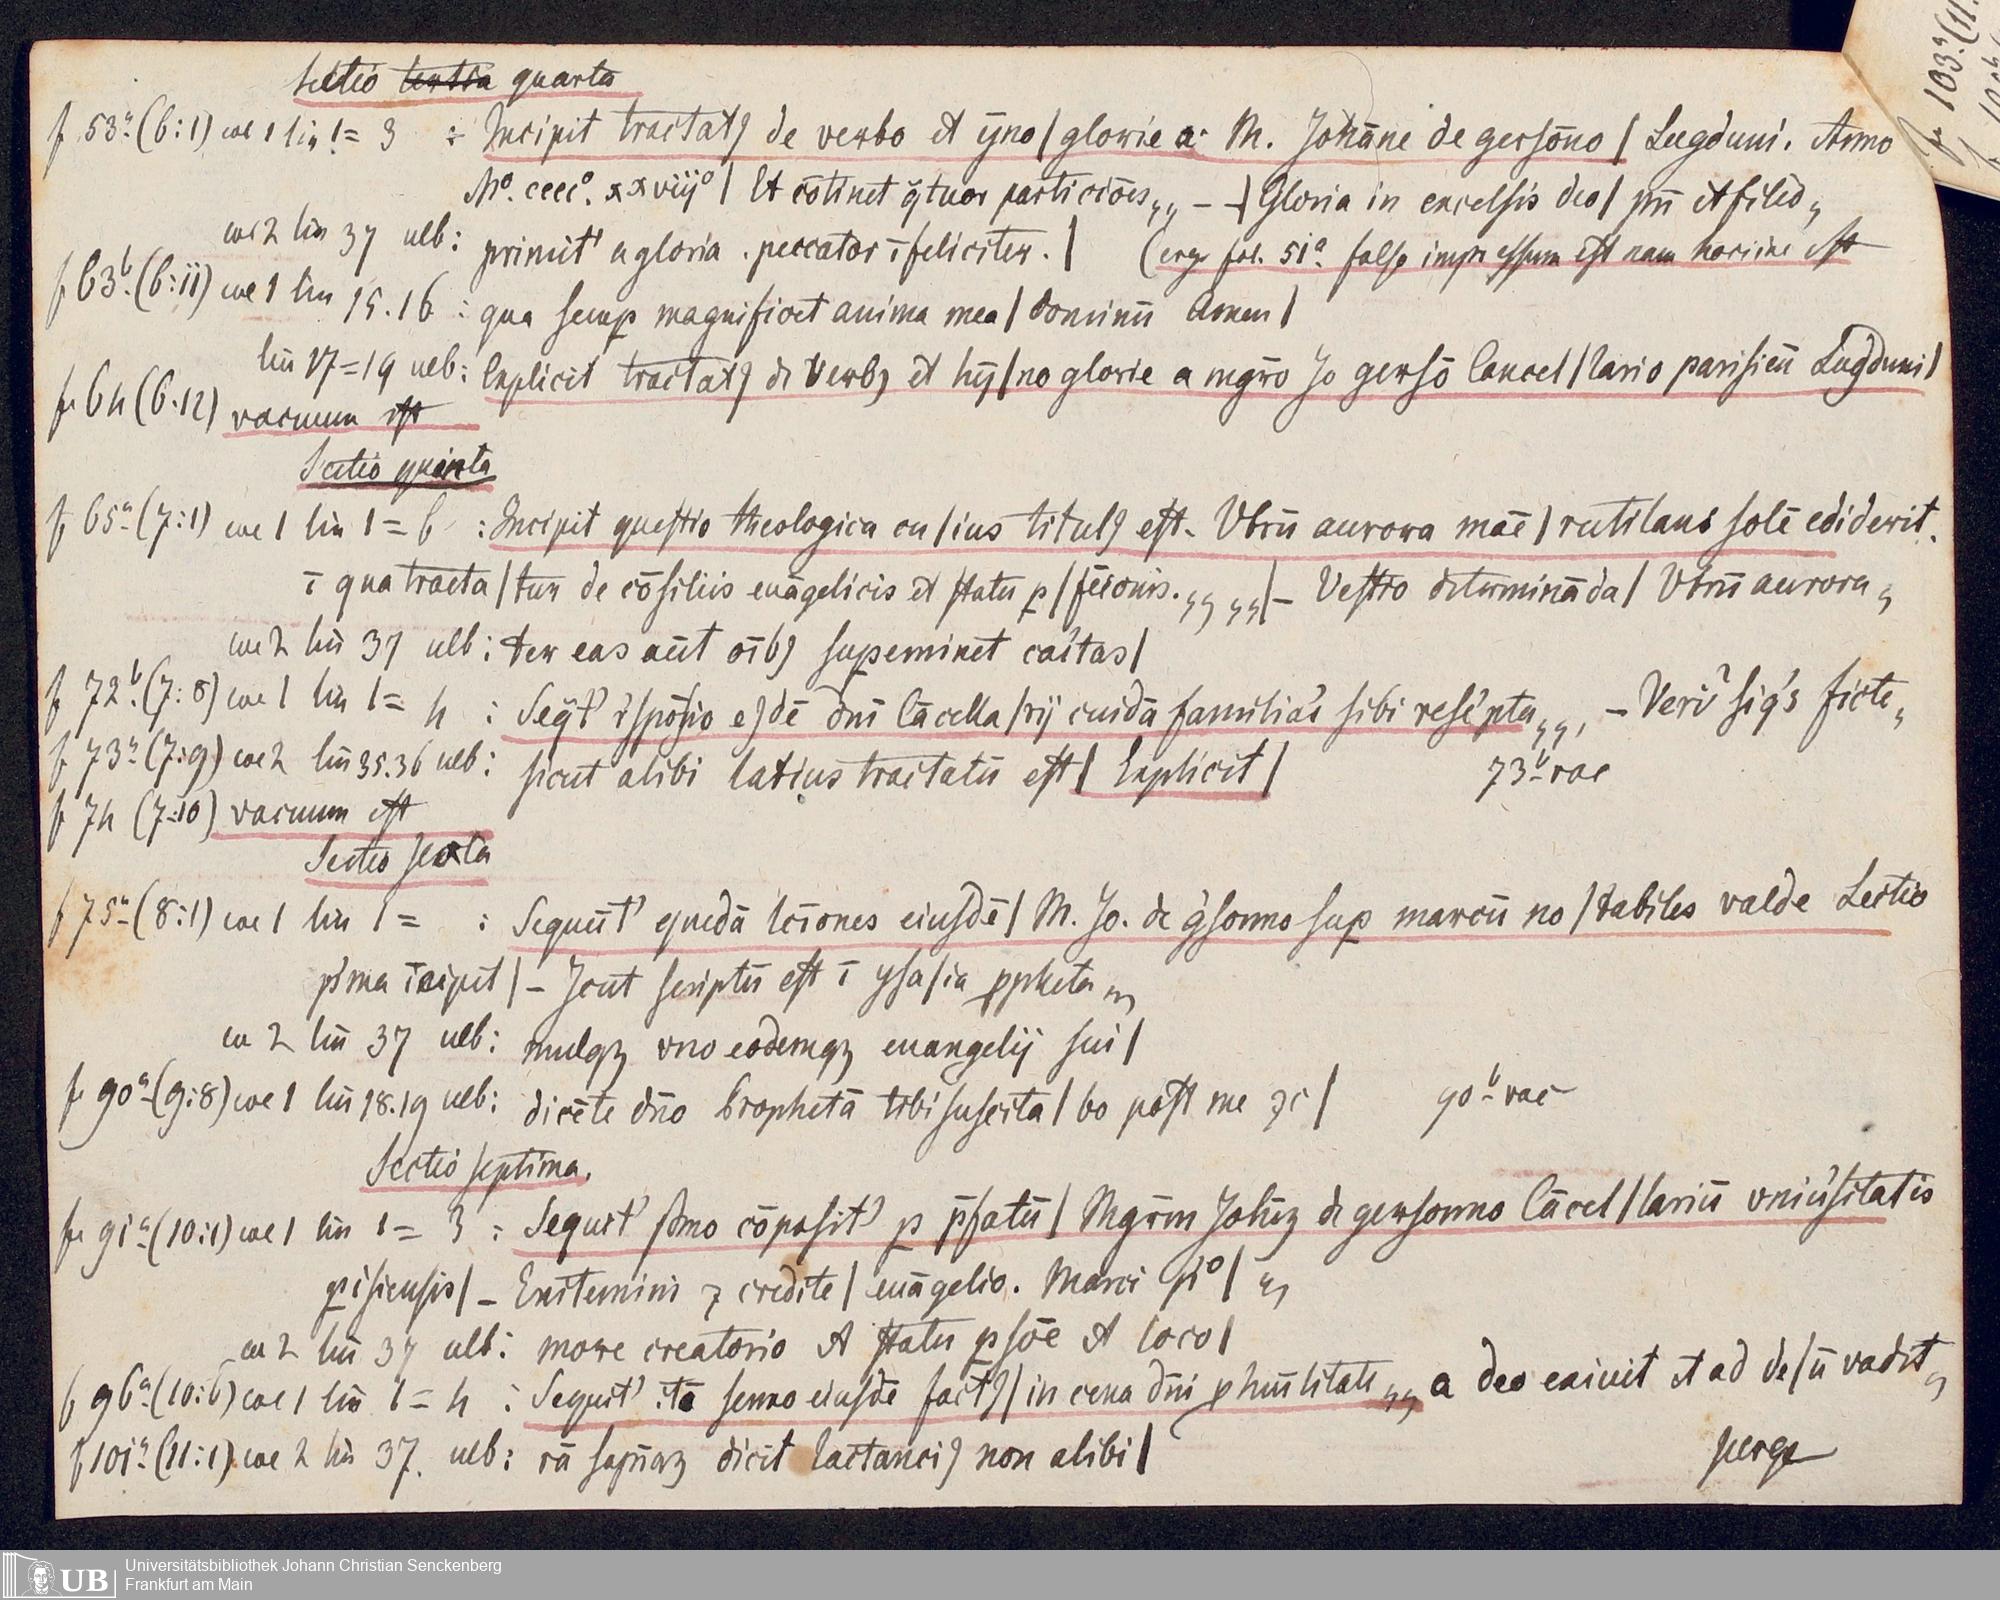 Sectio tertia quarta
f 53a (6:1) col 1 lin 1=3 : Incipit tractatꝯ de verbo et ÿno | glorie a M. Johāne de gersōno | Lugduni. Anno
Mº. cccc. xxviijº | Et cōtinet q̄tuor particiōes„ — | Gloria in excelsis deo |
col 2 lin 37 ulb: primit' a gloria . peccator īfeliciter. | (ergo fol. 51a falso impressum est nam hocine est
f 63b (6:11) col 1 lin 15.16 : qua semp magnificet anima mea | dominū Amen |
lin 17=19 ulb: Explicit tractatꝯ de verbo et hÿ|no glorie a mgr̄o Jo gersō Cancel|lario parisieñ Lugduni |
f 64 (6.12) vacuum est
Sectio quinta
f 65a (7:1) col 1 lin 1=6 : Incipit questio theologica cu|ius titulꝯ est. Vtrū aurora maē | rutilans solē ediderit.
ī qua tracta|tur de cōsiliis euāgelicis et statu p|fēiōnis.„ „ | — Vestro determināda | Vtrū aurora„
col 2 lin 37 ulb: ter eas aūt oībꝯ supeminet caītas |
f 72b (7:8) col 1 lin 1=4 : Seq̄t' r̄spōsio eꝯdē dn̄i Cācella|rij cuidā familia's sibi resc'pta„ — Veri' sig's ficte„
f 73a (7:9) col 2 lin 35.36 ulb: sicut alibi latius tractatū est | Explicit | 73b vac
f 74 (7:10) vacuum est
Sectio sexta
f 75a (8:1) col 1 lin 1= : Sequūt' quedā lc̄iones eiusdē | M. Jo. de g'sonno sup marcū no|tabiles valde Lectio
p'ma īcipit | — Icut scriptū est ī ysa|ia ꝓpheta„
col 2 lin 37 ulb: mulqꝫ vno eodemqꝫ euangelij sui |
f 90a (9:8) col 1 lin 18.19 ulb: dicēte dn̄o Prophetā tibi suscita|bo post me ꝛc | 90b vac
Sectio septima.
f 91a (10:1) col 1 lin 1=3 : Sequit' s̄mo cōposit' p p̄fatū | Mgr̄m Johēꝫ de gersonno Cācel|lariū vniu'sitatis
pisiensis | — Enitemini ⁊ credite | euāgelio. Marci p'º | „
col 2 lin 37 ulb: more creatorio et statu p̱sōe et loco |
f 96a (10:6) col 1 lin 1=4 : Sequit' itē sermo eiusdē factꝯ | in cena dn̄i p̱ hūilitate„ a deo exiuit et ad de|ū vadit„
f 101a (11:1) col 2 lin 37. ulb: rā dicit lactanciꝯ non alibi | perge
f 103a (11.
UB Universitätsbibliothek Johann Christian Senckenberg
Frankfurt am Main